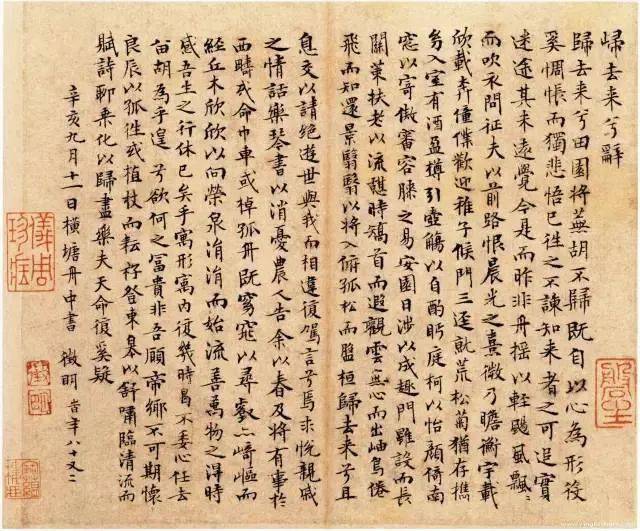 歸去来兮辭
歸去来兮田園將蕪胡不歸既自以心為形役
奚惆悵而獨悲悟已往之不諫知来者之可追實
迷途其未遠覺今是而昨非舟摇以輕颺風飄〻
而吹衣問征夫以前路恨晨光之熹微乃瞻衡宇載
欣載奔僮僕歡迎稚子候門三逕就荒松菊猶存携
幼入室有酒盈樽引壺觴以自酌眄庭柯以怡顔倚南
窓以寄傲審容膝之易安園日涉以成趣門雖設而長
關策扶老以流憩時矯首而遐觀雲無心而出岫鳥倦
飛而知還景翳翳以將入撫孤松而盤桓歸去来兮且
息交以請絶遊世與我而相違復駕言兮焉求悦親戚
之情話樂琴書以消憂農人告余以春及將有事於
西疇或命巾車或棹孤舟既窈窕以尋壑亦崎嶇而
經丘木欣欣以向榮泉涓涓而始流善萬物之得時
感吾生之行休已矣乎寓形寓内復幾時曷不委心任去
留胡為乎遑兮欲何之冨貴非吾願帝鄉不可期懷
良辰以孤往或植杖而耘耔登東皋以舒嘯臨清流而
賦詩聊乘化以歸盡樂夫天命復奚疑
辛亥九月十一日横塘舟中書 徵明 時年八十又二
儀周珍藏
徵明